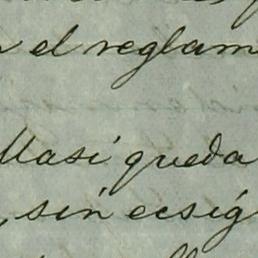 el reglam
Masi queda
, sin ecsig